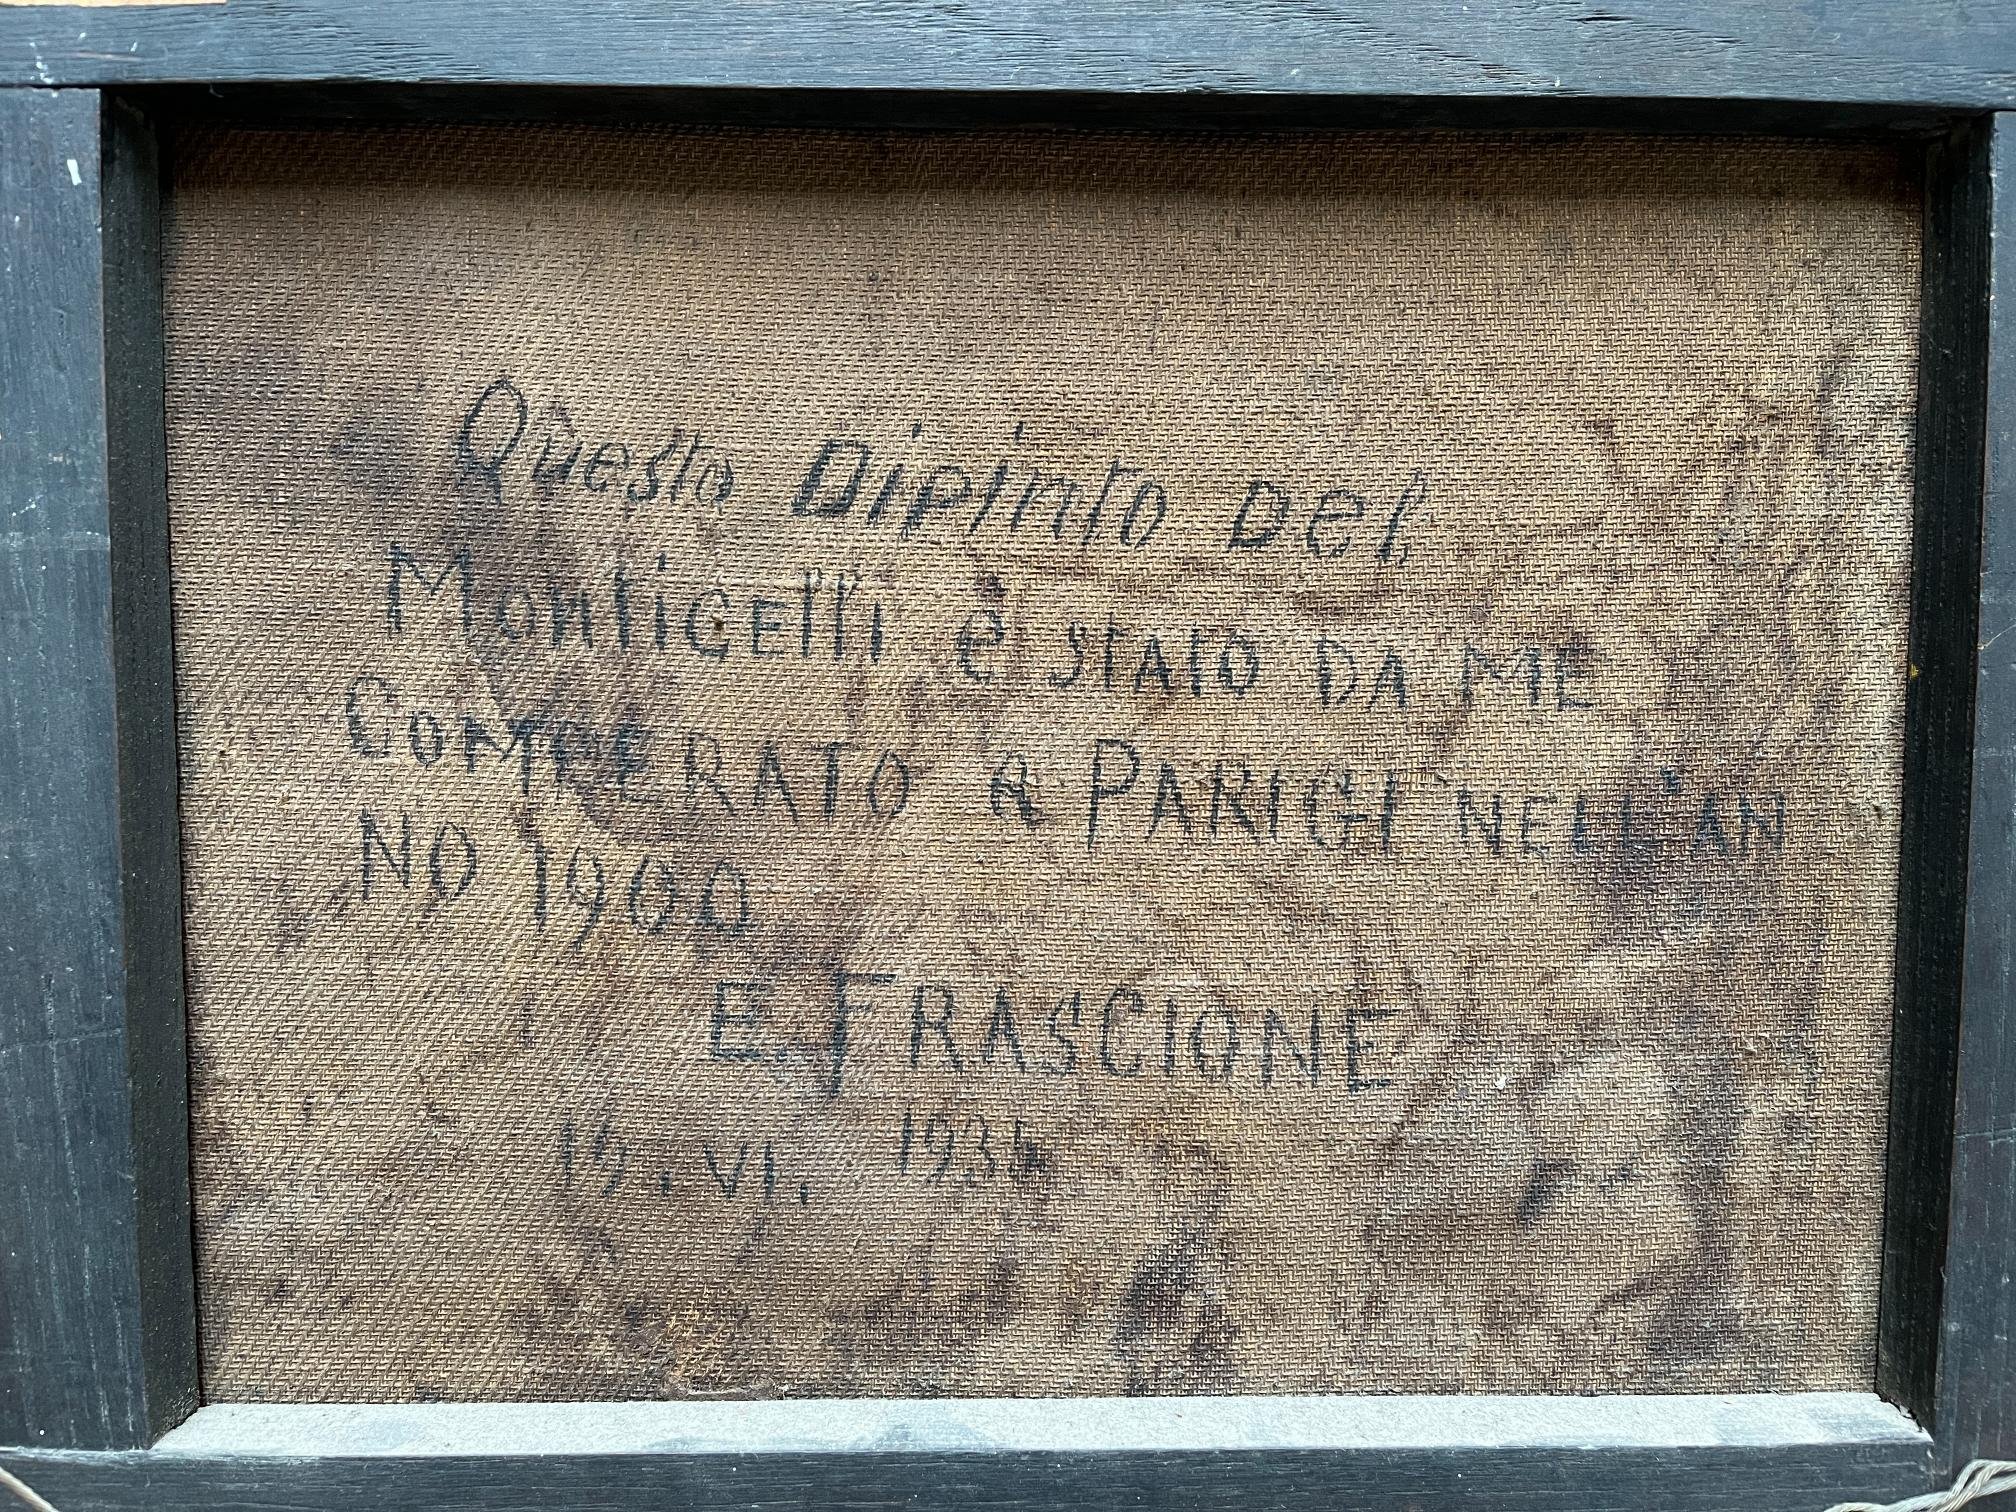 Questo Dipinto Del
Monticelli è STATO DA ME
COMPERATO A PARIGI NELL'AN
NO 1900
E. FRASCIONE
VI.